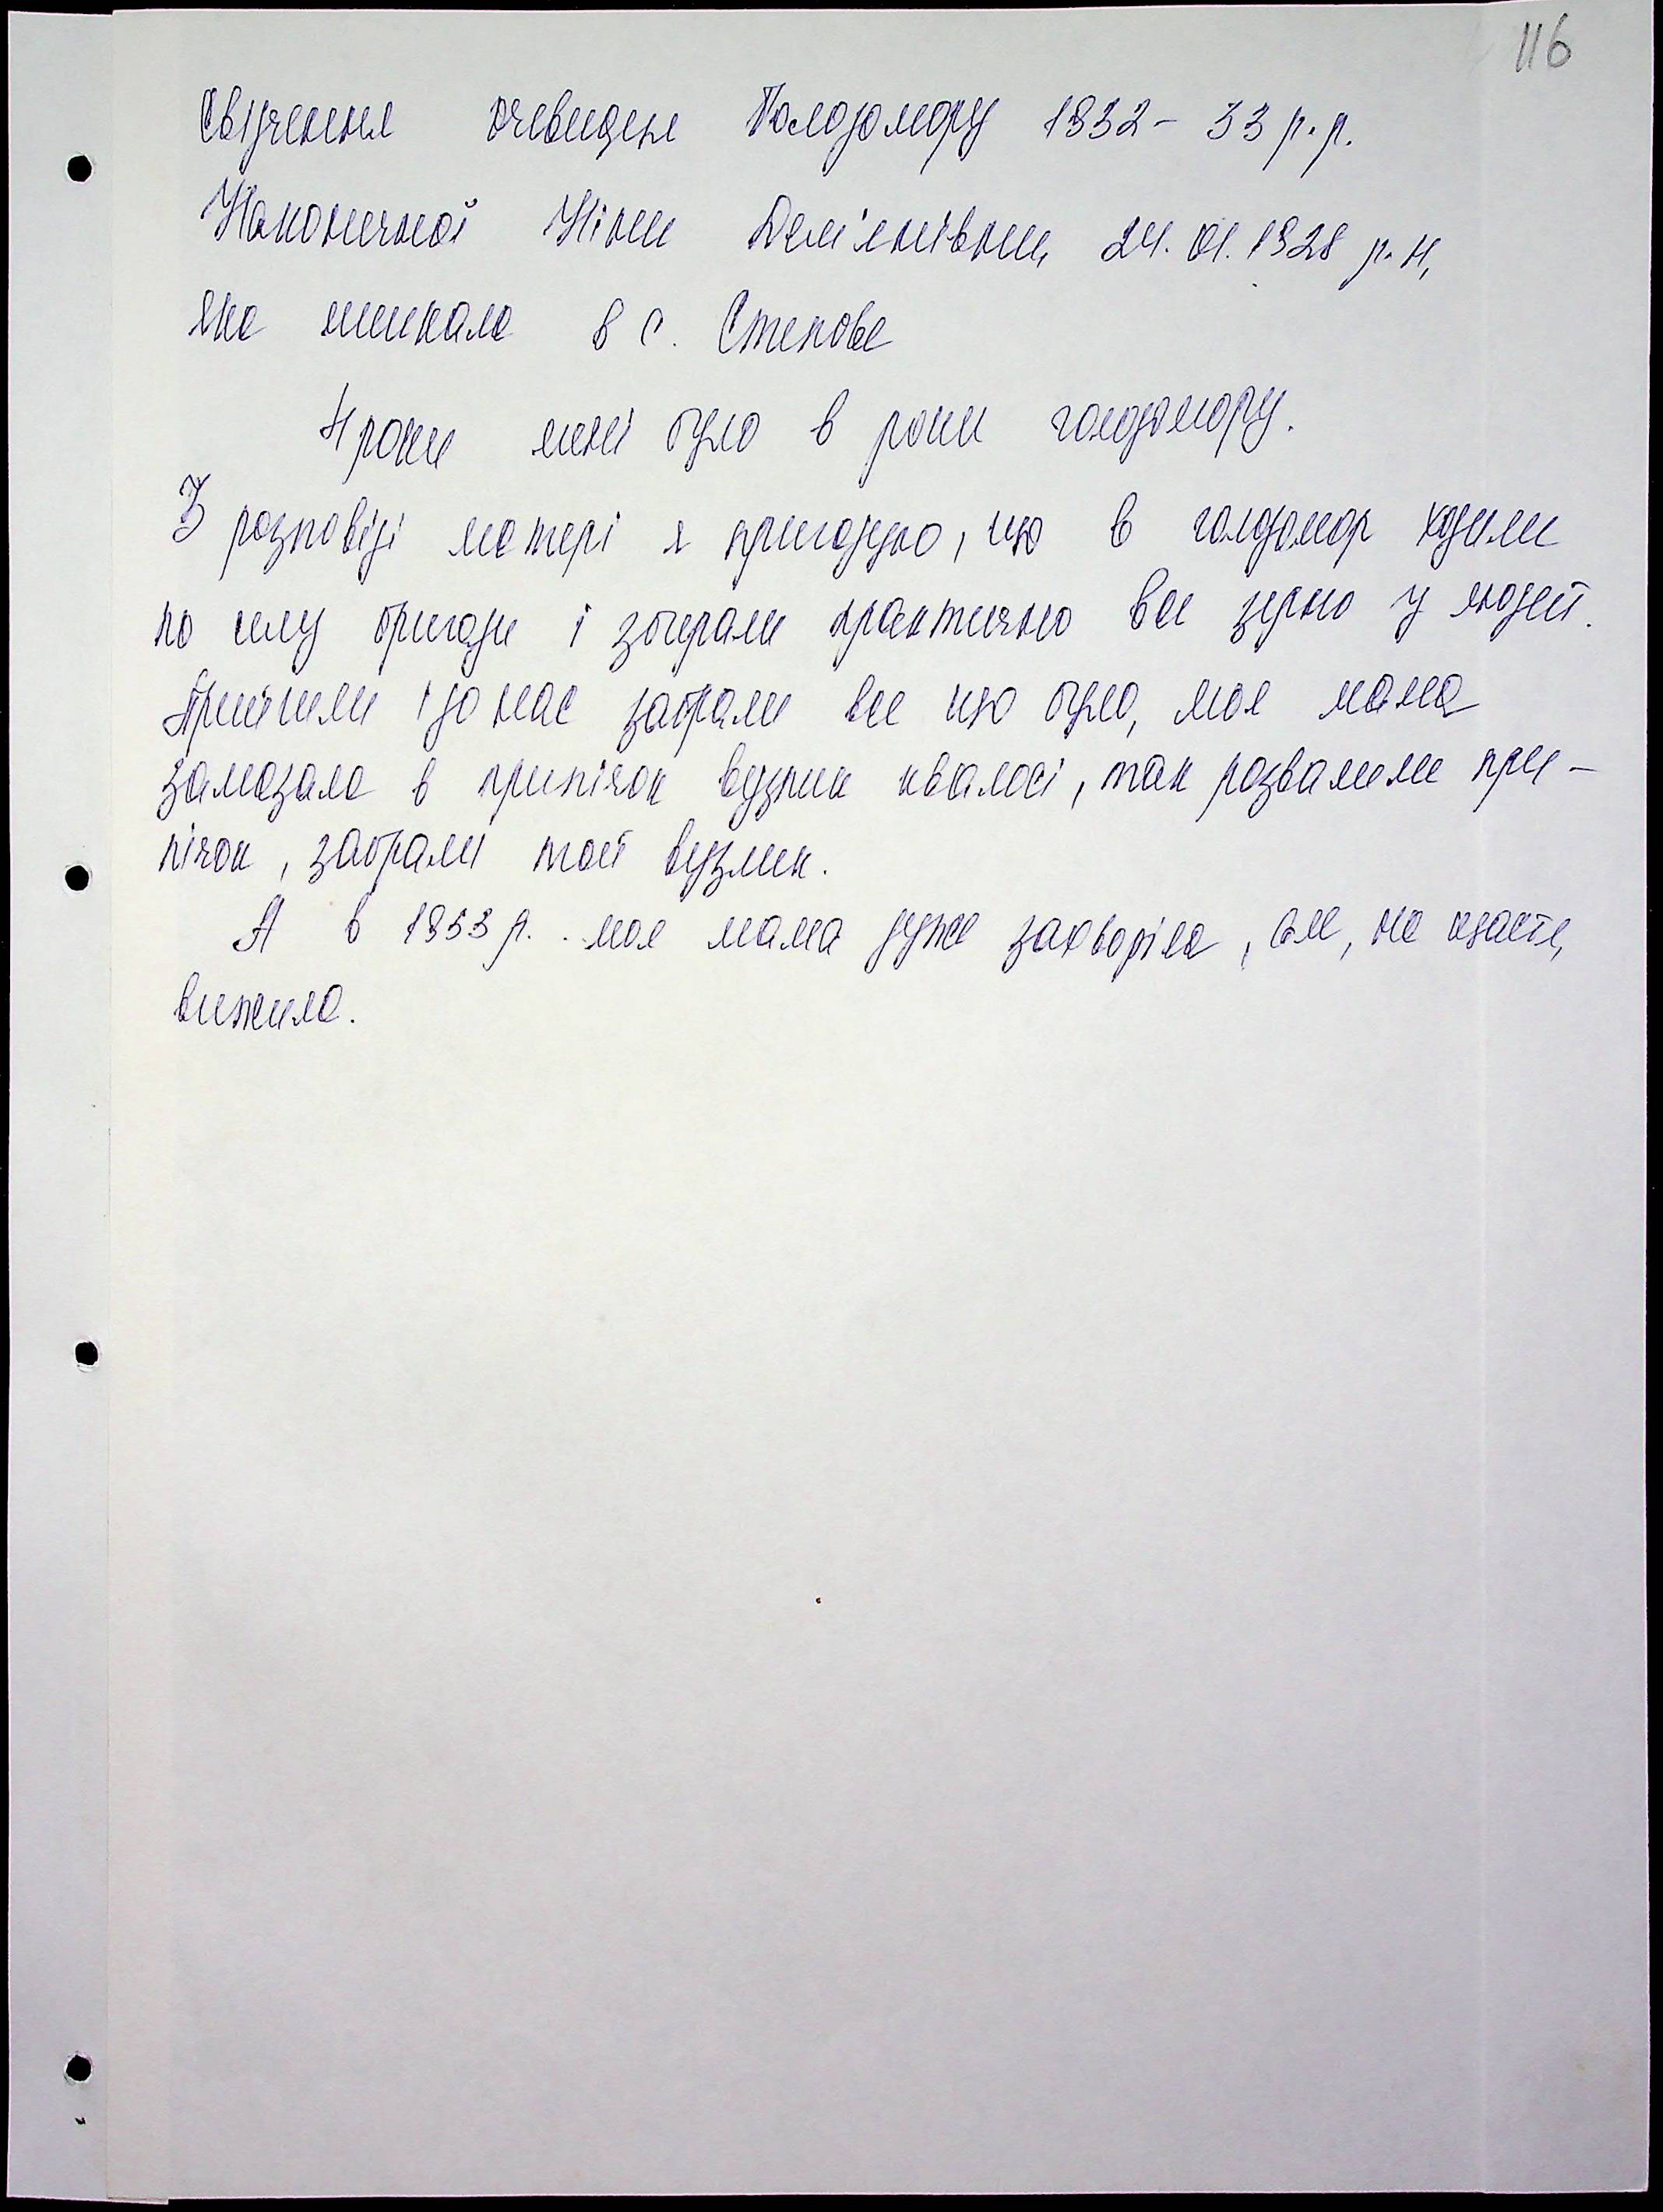 116
Свідчення очевидця Голодомору 1932 - 33 р.р.
Наконечної Ніни Дем'янівни, 24.01.1928 р.н,
яка мешкала в с. Степове
4 роки мені було в роки голодомору.
З розповіді матері я пригадую, що в голодомор ходили
по селу бригади і збирали практично все зерно у людей.
Прийшли і до нас забрали все що було, моя мама
замазала в припічок вузлик квасолі, так розвалили при-
пічок, забрали той вузлик.
А в 1933 р. моя мама дуже захворіла, але, на щастя,
вижила.